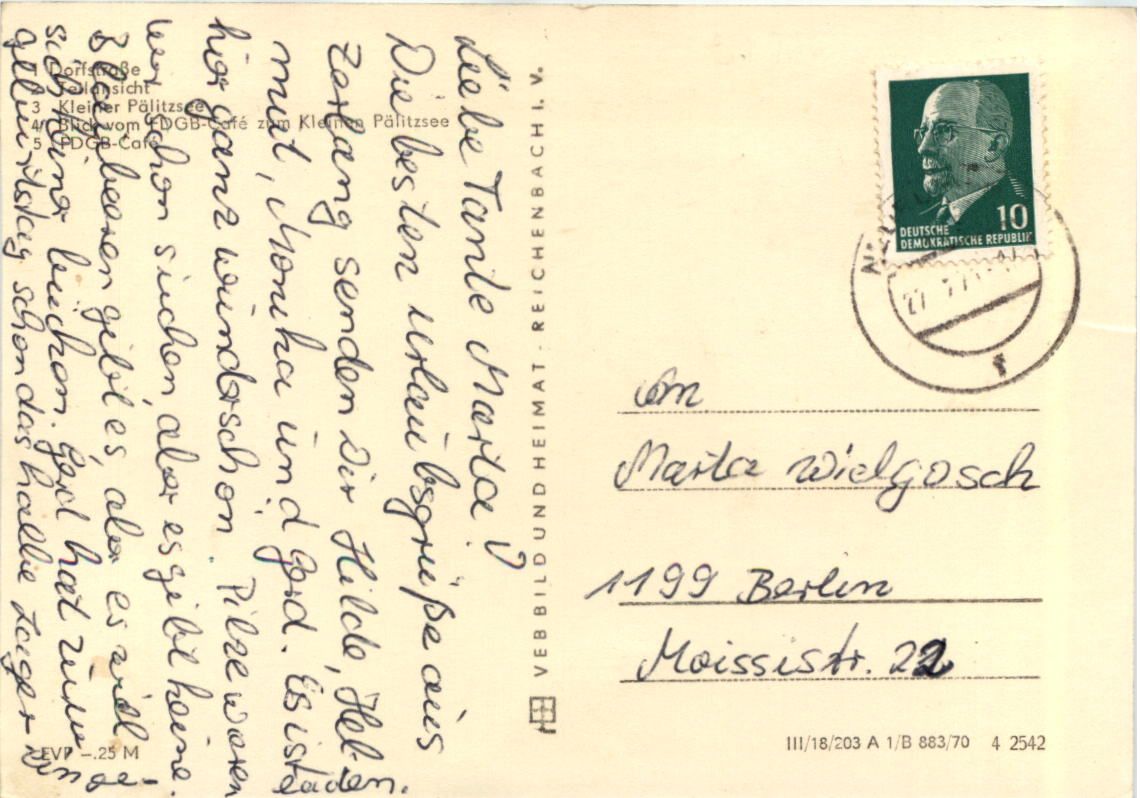 1 Dorfstraße
2 Teilansicht
3 Kleiner Pälitzsee
4 Blick vom FDGB-Café zum Kleinen Pälitzsee
5 FDGB-Café
Liebe Tante Marta!
Die besten Urlaubsgrüße aus
senden Dir Hilde, Hel-
mut, Monika und Gerd. Es ist
hier ganz wunderschön. Pilze waren
wir schon suchen aber es gibt keine.
Blaubeeren gibt es, aber es wird
sich keiner bücken. Gerd hat zum
geburtstag schon das halbe Lager einge-
laden.
EVP -.25 M
VEB BILD UND HEIMAT · REICHENBACH I. V.
10
DEUTSCHE
DEMOKRATISCHE REPUBLIK
27.7.71
An
Marta Wielgosch
1199 Berlin
Moissistr. 22
III/18/203 A 1/B 883/70 4 2542